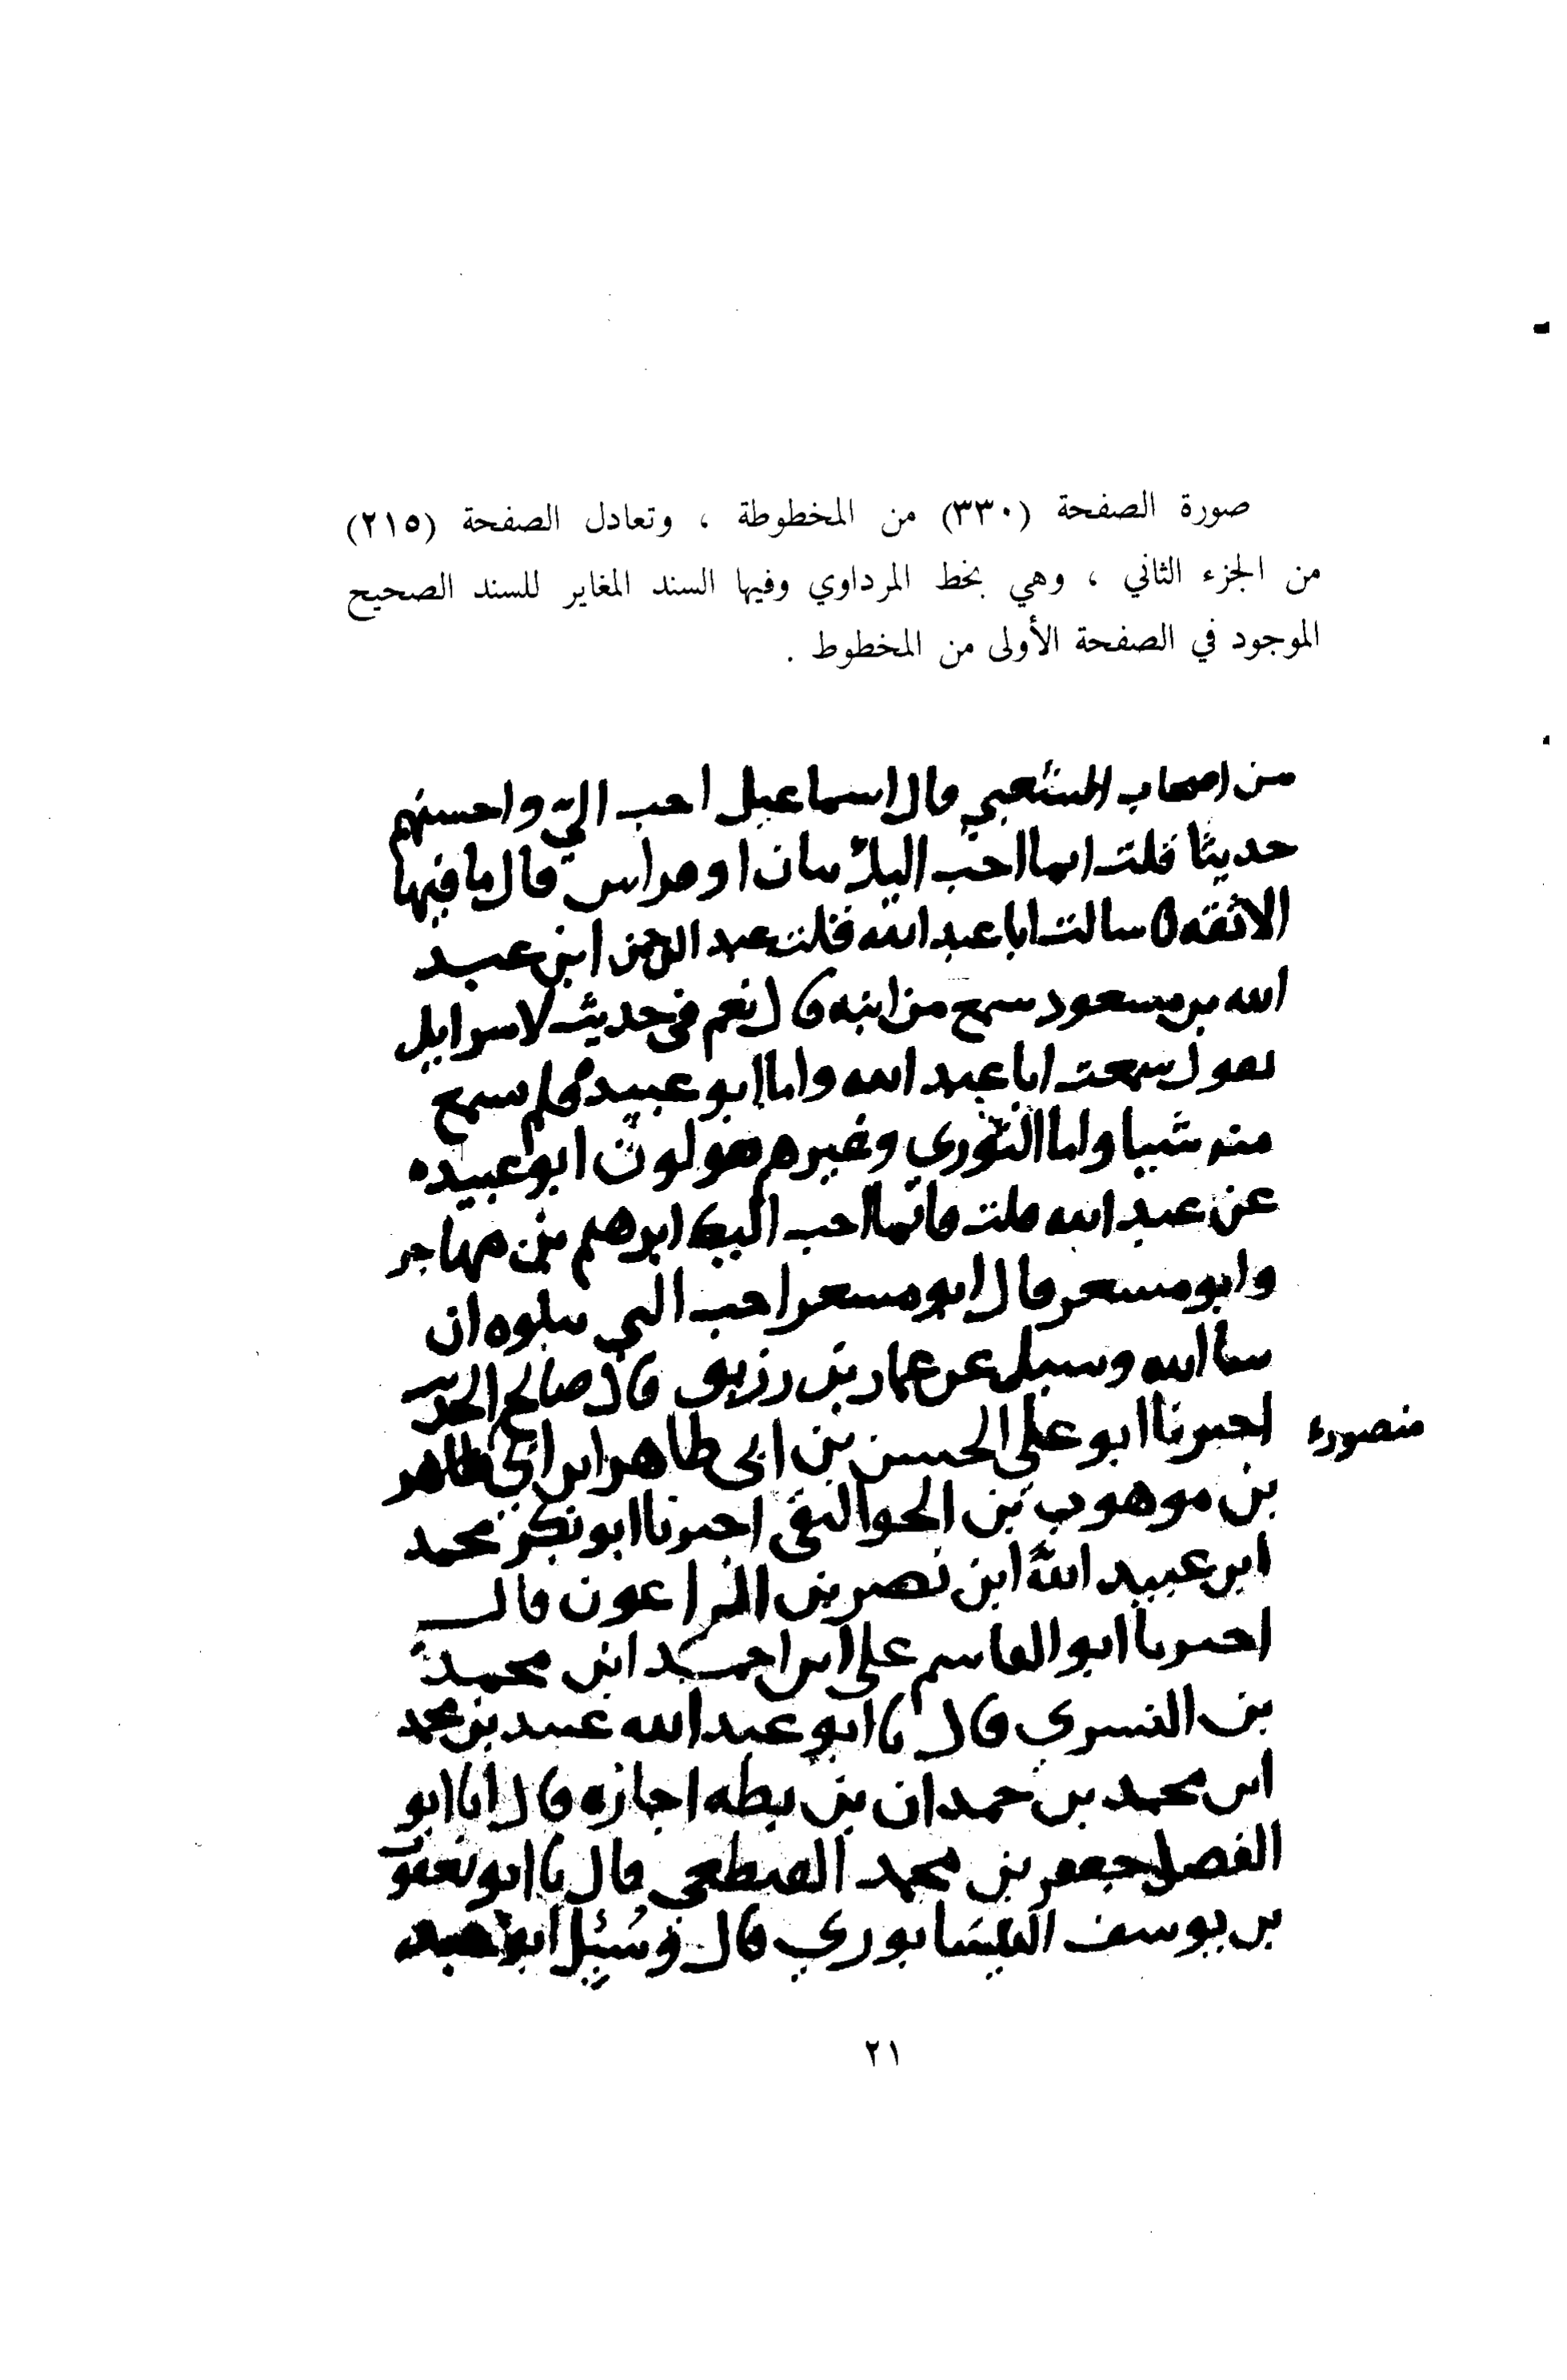 صورة الصفحة (٣٣٠) من المخطوطة ، وتعادل الصفحة (٢١٥)
من الجزء الثاني ، وهي بخط المرداوي وفيها السند المغاير للسند الصحيح
الموجود في الصفحة الأولى من المخطوط .
من اصحاب الشعبي قال اسماعيل احب الي واحسنهم
حديثا قلت ايما احب اليك بيان او فراس قال ما فيهما
الا ثقه سالت ابا عبد الله قلت عبد الرحمن ابن عبد
الله بن مسعود سمع من ابيه قال نعم في حديث لاسرايل
يقول سمعت ابا عبد الله واما ابو عبيده فلم يسمع
منه شيا واما الثوري وغيرهم يقولون ابو عبيده
عن عبد الله قلت فايما احب اليك ابرهيم بن مهاجر
وابو مسعر قال ابو مسعر احب الي يتلوه ان
شا الله وسيل عن عمار بن رزيق قال صالح الحديث
اخبرنا ابو علي الحسن بن ابي طاهر ابن ابي طاهر
منصور
بن موهوب بن الجواليقي اخبرنا ابو بكر محمد
ابن عبيد الله ابن نصر بن الزاعون قال
اخبرنا ابو القاسم علي ابن احمد ابن محمد
بن البسري قال نا ابو عبد الله عبيد بن محمد
ابن محمد بن حمدان بن بطه اجازه قال انا ابو
الفضل جعفر بن محمد القطعي قال نا ابو يعقوب
بن يوسف النيسابوري قال وسئل ابو عبد
٢١